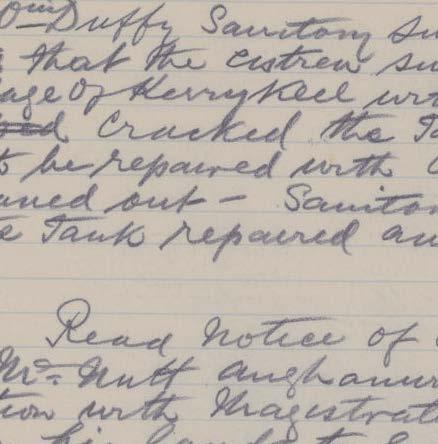 Duffy Sanitary Su
that the cistren su
age of Kerrykeel wt
cracked the T
to be repaired with
aned out - Sanitar
e Tank repaired an
Read Notice of
Mr. Nutt aughanur
tion with Magistrat